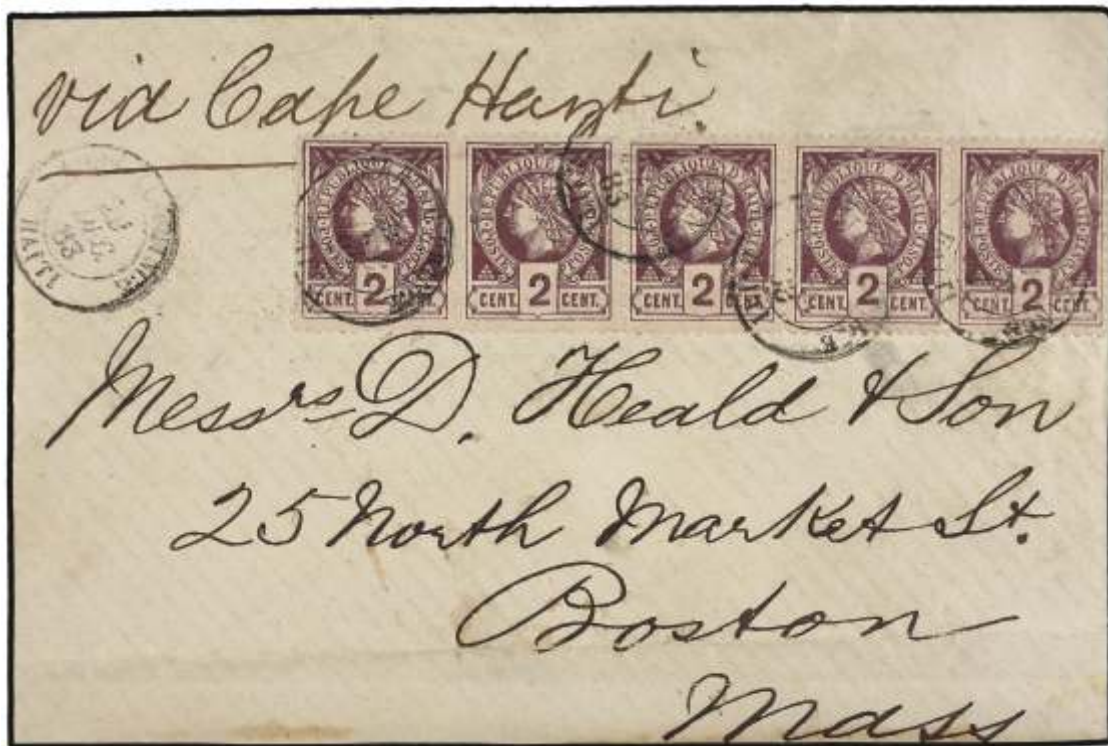 via Cape Hayti
HAITI
83
REPUBLIQUE D'HAITI
CENT. 2 CENT.
REPUBLIQUE D'HAITI
CENT. 2 CENT.
REPUBLIQUE D'HAITI
CENT. 2 CENT.
REPUBLIQUE D'HAITI
CENT. 2 CENT.
REPUBLIQUE D'HAITI
CENT. 2 CENT.
Messrs D. Heald & Son
25 North Market St.
Boston
Mass